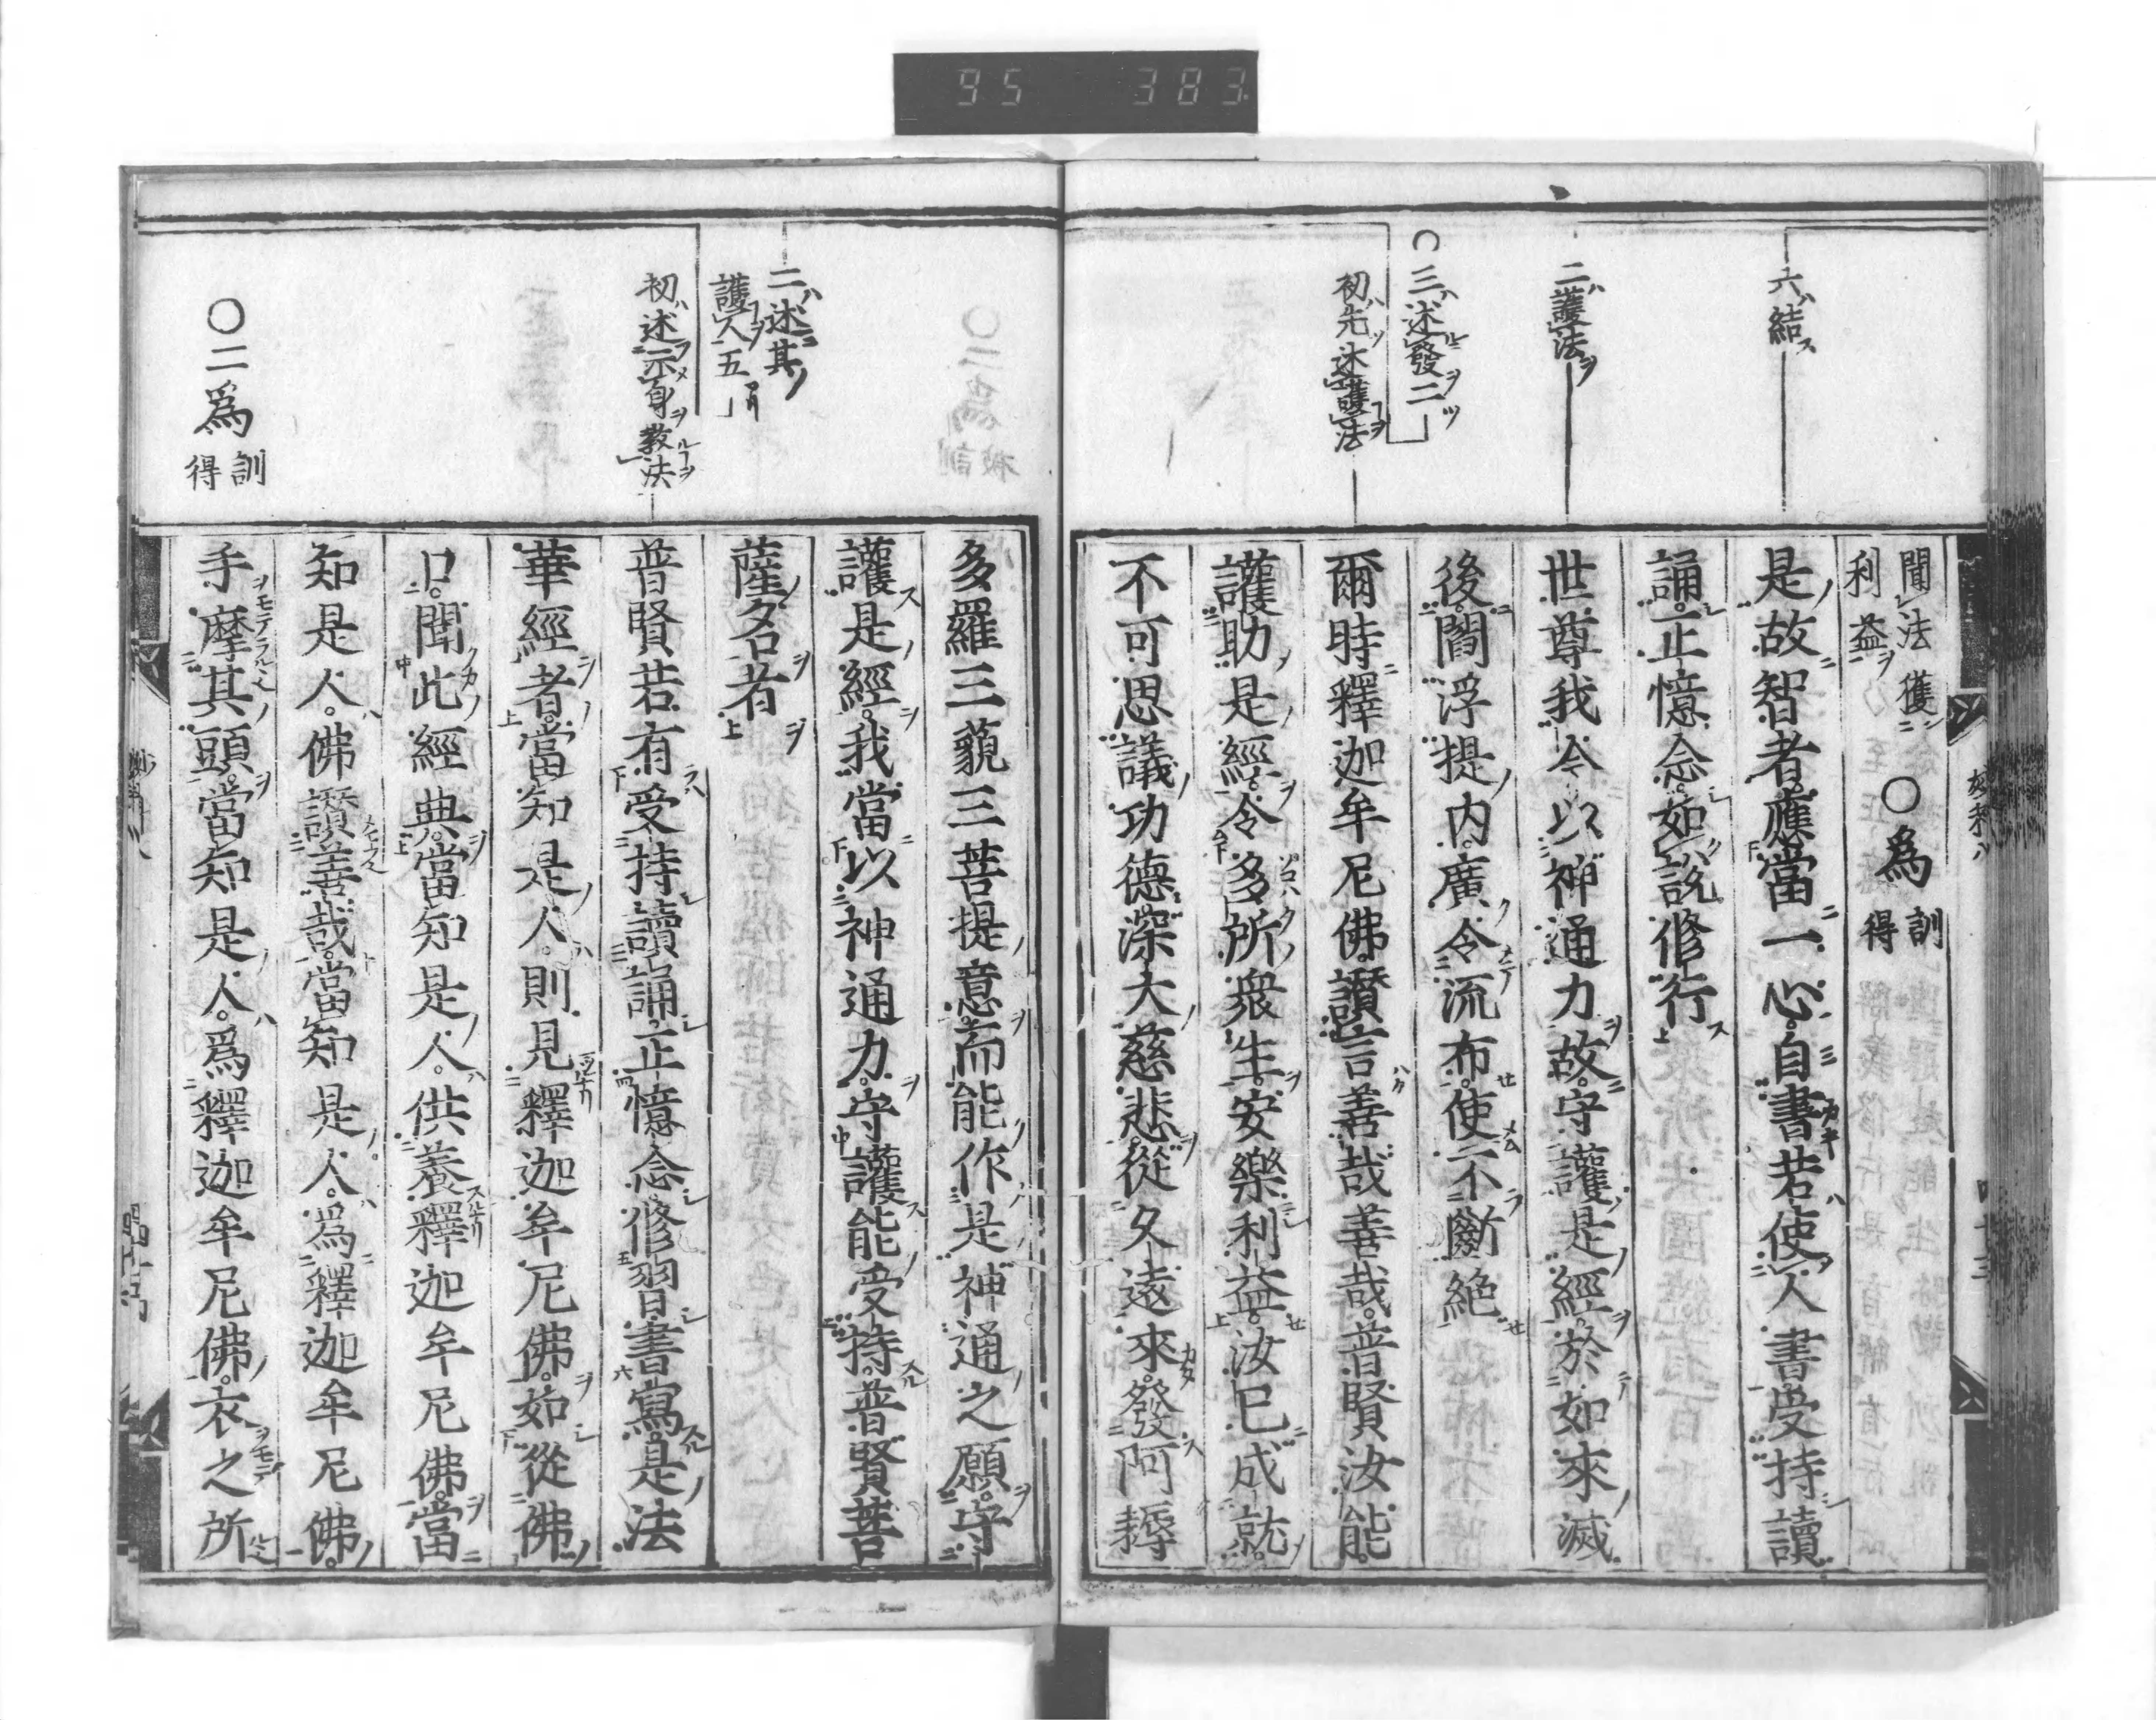 95 383
六結
二護法
○三述發二
初先述護法
聞法獲
利益
○為 訓得
是故智者應當一心自書若使人書受持讀
誦正憶念如說修行
世尊我今以神通力故守護是經於如來滅
後閻浮提內廣令流布使不斷絕
爾時釋迦牟尼佛讚言善哉善哉普賢汝能
護助是經令多所衆生安樂利益汝已成就
不可思議功德深大慈悲從久遠來發阿耨
二述其
護人五
初述示身教法
○二為 訓得
多羅三藐三菩提意而能作是神通之願守
護是經我當以神通力守護能受持普賢菩
薩名者
普賢若有受持讀誦正憶念修習書寫是法
華經者當知是人則見釋迦牟尼佛如從佛
口聞此經典當知是人供養釋迦牟尼佛當
知是人佛讚善哉當知是人為釋迦牟尼佛
手摩其頭當知是人為釋迦牟尼佛衣之所